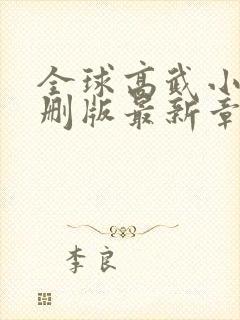 全球高武小
删版最新章
李良